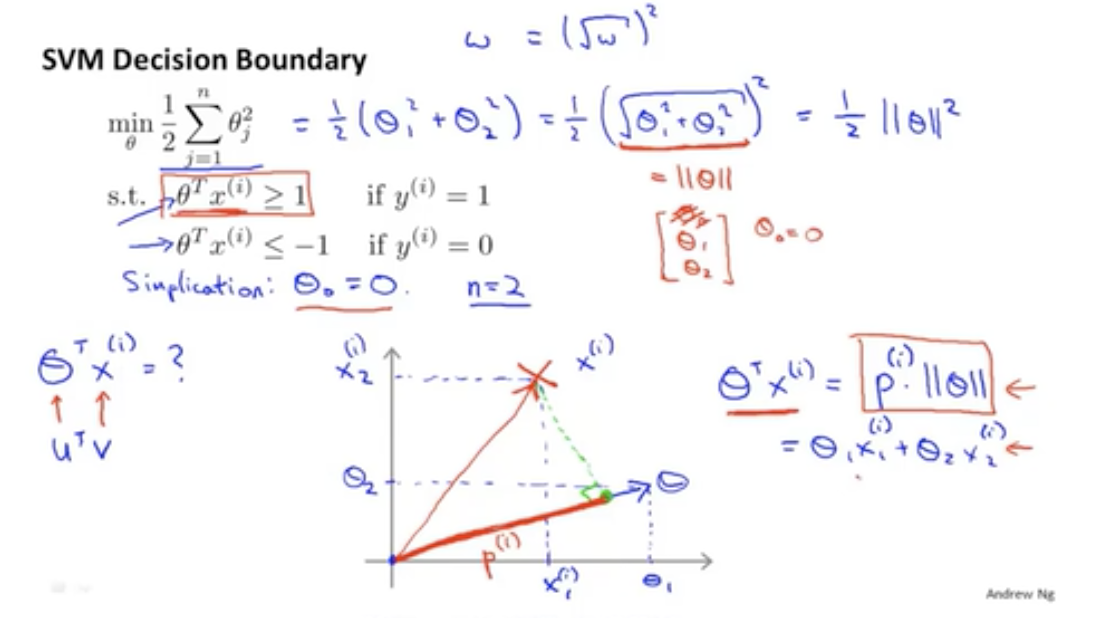 ω = (√ω)²
SVM Decision Boundary
min_θ 1/2 ∑_{j=1}^{n} θ_j² = 1/2 (θ₁² + θ₂²) = 1/2 (√(θ₁² + θ₂²))² = 1/2 ||θ||²
= ||θ||
s.t. θᵀx⁽ⁱ⁾ ≥ 1 if y⁽ⁱ⁾ = 1
→ θᵀx⁽ⁱ⁾ ≤ −1 if y⁽ⁱ⁾ = 0
[θ₁ θ₂] θ₀ = 0
Simplication: θ₀ = 0. n=2
θᵀx⁽ⁱ⁾ = ?
↑ ↑
uᵀv
x₂⁽ⁱ⁾
x⁽ⁱ⁾
θ₂
θ
p⁽ⁱ⁾
x₁⁽ⁱ⁾
θ₁
θᵀx⁽ⁱ⁾ = p⁽ⁱ⁾ · ||θ|| ←
= θ₁x₁⁽ⁱ⁾ + θ₂x₂⁽ⁱ⁾ ←
Andrew Ng